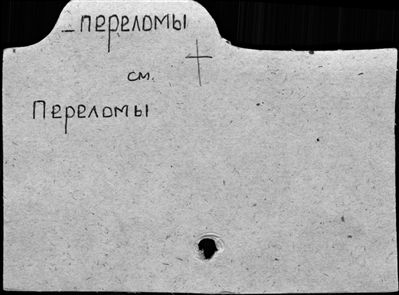 – переломы
см.
Переломы